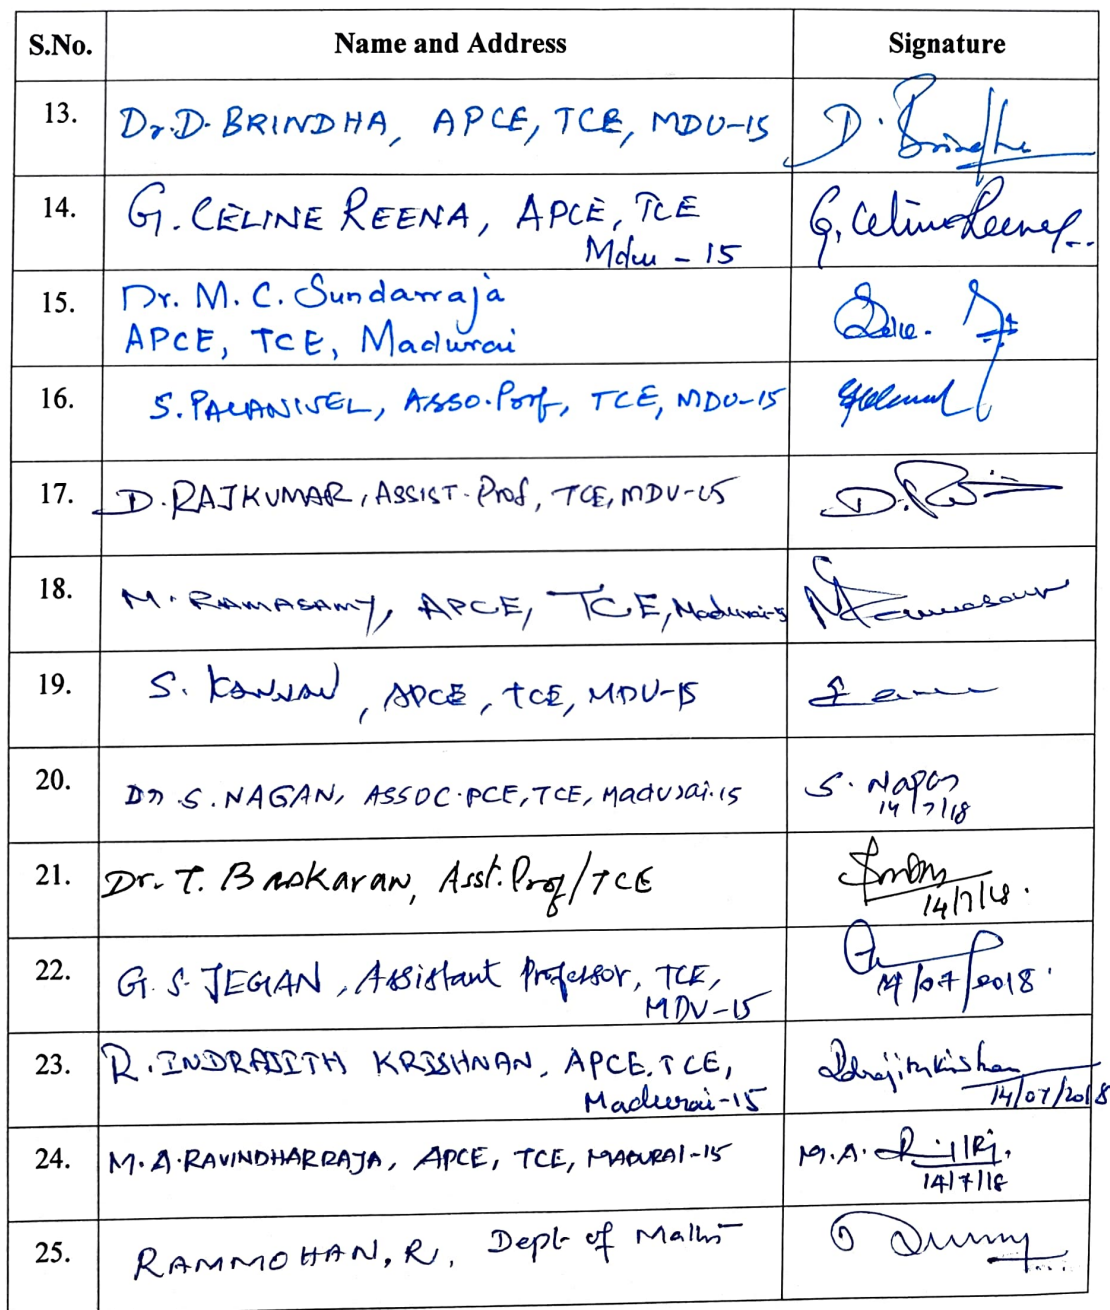 S.No. Name and Address Signature
13. Dr.D. BRINDHA, APCE, TCE, MDU-15 D. Brindha
14. G. CELINE REENA, APCE, TCE G. Celine Reena
Mdu - 15
15. Dr. M. C. Sundarraja
APCE, TCE, Madurai
16. S. PALANIVEL, ASSO. Prof, TCE, MDU-15
17. D. RAJKUMAR, ASSIST. Prof, TCE, MDU-15
18. M. RAMASAMY, APCE, TCE, Madurai-15
19. S. KANNAN, APCE, TCE, MDU-15
20. Dr. S. NAGAN, ASSOC. PCE, TCE, Madurai.15 S. Nagan
14/7/18
21. Dr. T. Baskaran, Asst. Prof/TCE
14/7/18.
22. G. S. JEGAN, Assistant Professor, TCE,
MDU-15 14/07/2018.
23. R. INDRAJITH KRISHNAN, APCE, TCE, Indrajithkrishnan
Madurai-15 14/07/2018
24. M. A. RAVINDHARRAJA, APCE, TCE, MADURAI-15 M.A.
14/7/18
25. RAMMOHAN, R, Dept of Maths